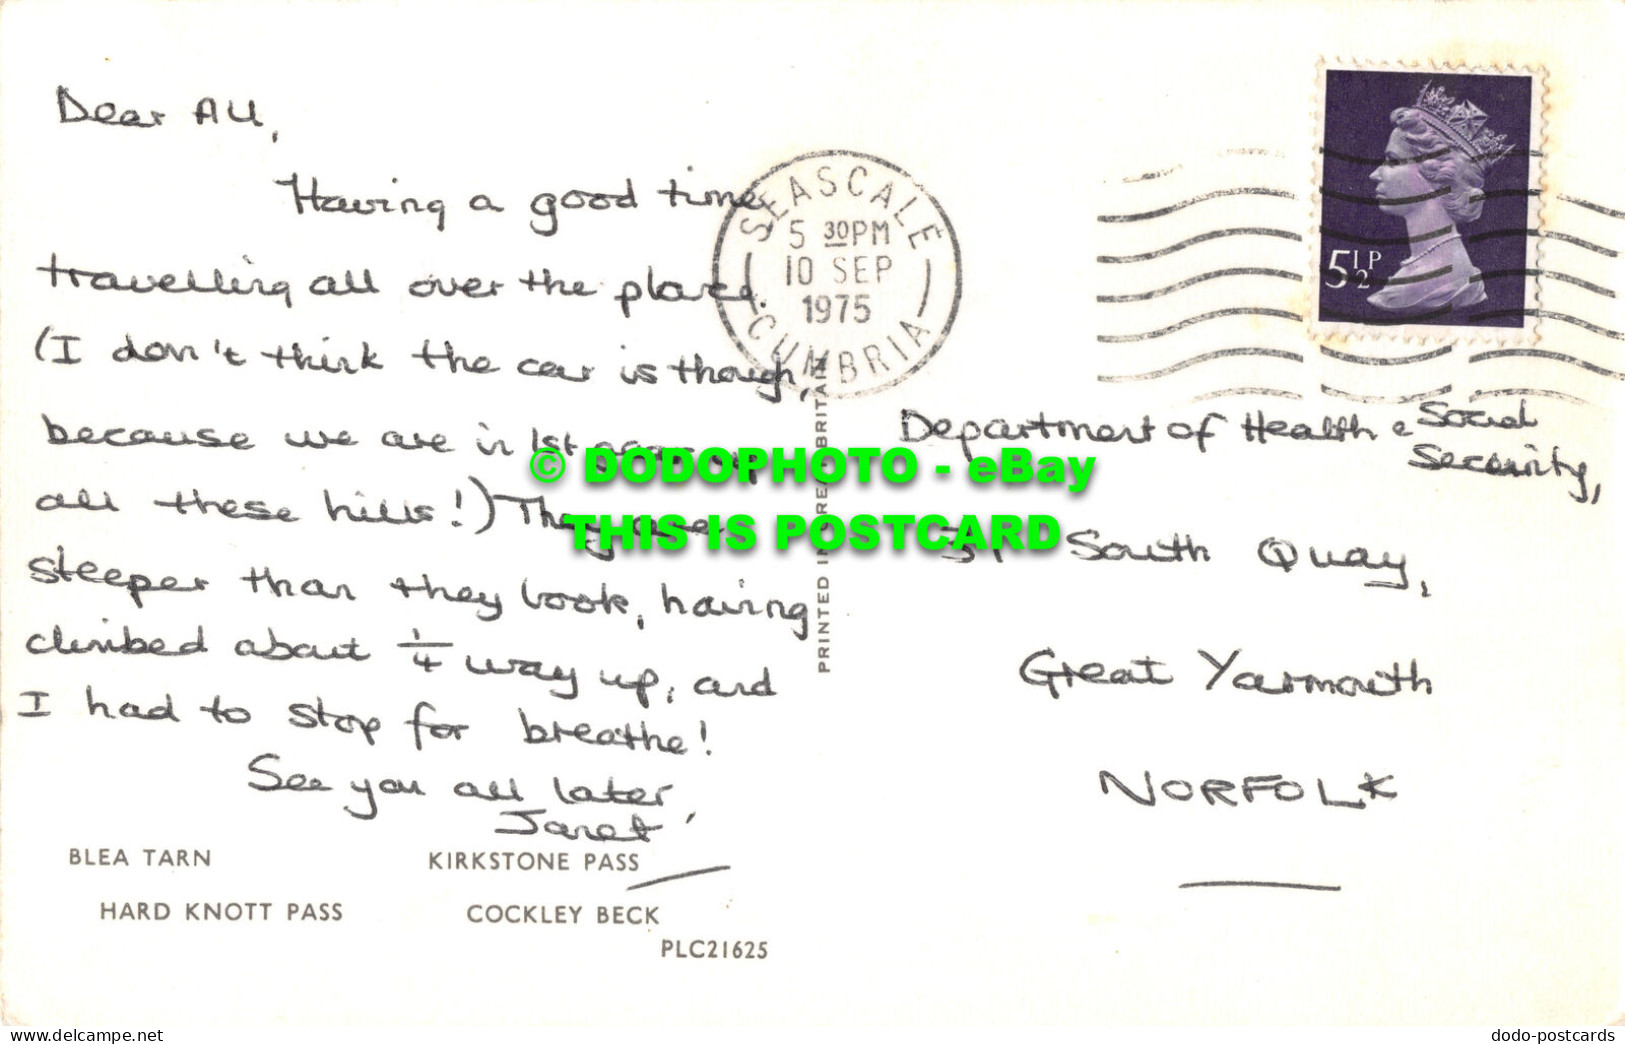 Dear All,
Having a good time
travelling all over the place.
(I don't think the car is though,
because we are in 1st gear up
all these hills!) They are
steeper than they look, having
climbed about 1/4 way up, and
I had to stop for breathe!
See you all later,
Janet
BLEA TARN
KIRKSTONE PASS
HARD KNOTT PASS
COCKLEY BECK
PLC21625
PRINTED IN GREAT BRITAIN
SEASCALE
5 30PM
10 SEP
1975
CUMBRIA
5½P
Department of Health & Social
Security,
South Quay,
Great Yarmouth
NORFOLK
© DODOPHOTO - eBay
THIS IS POSTCARD
www.delcampe.net
dodo-postcards